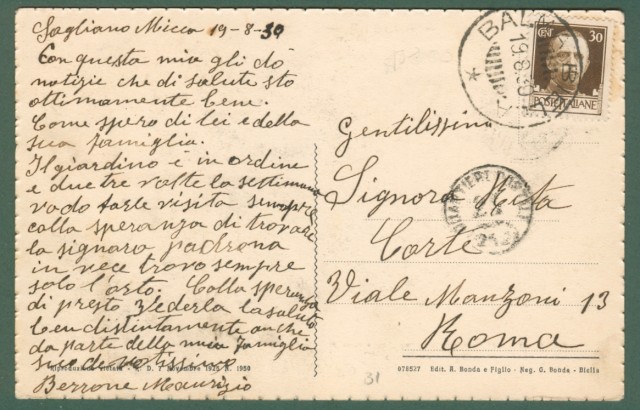 Sagliano Micca 19-8-39
Con questa mia gli dò
notizie che di salute sto
ottimamente bene.
Come spero di lei e della
sua famiglia.
Il giardino è in ordine
e due tre volte la settimana
vado farle visita sempre
colla speranza di trovare
la signora padrona
in vece trovo sempre
solo l'orto. Colla speranza
di presto vederla la saluto
ben distintamente anche
da parte della mia famiglia
suo devotissimo
Berrone Maurizio
CENT 30
POSTE ITALIANE
19.8.39
Gentilissima
Signora Rita
Corte
Viale Manzoni 13
Roma
Riproduzione vietata
076537 Edit. A. Bonda e Figlio - Neg. G. Bonda - Biella
31